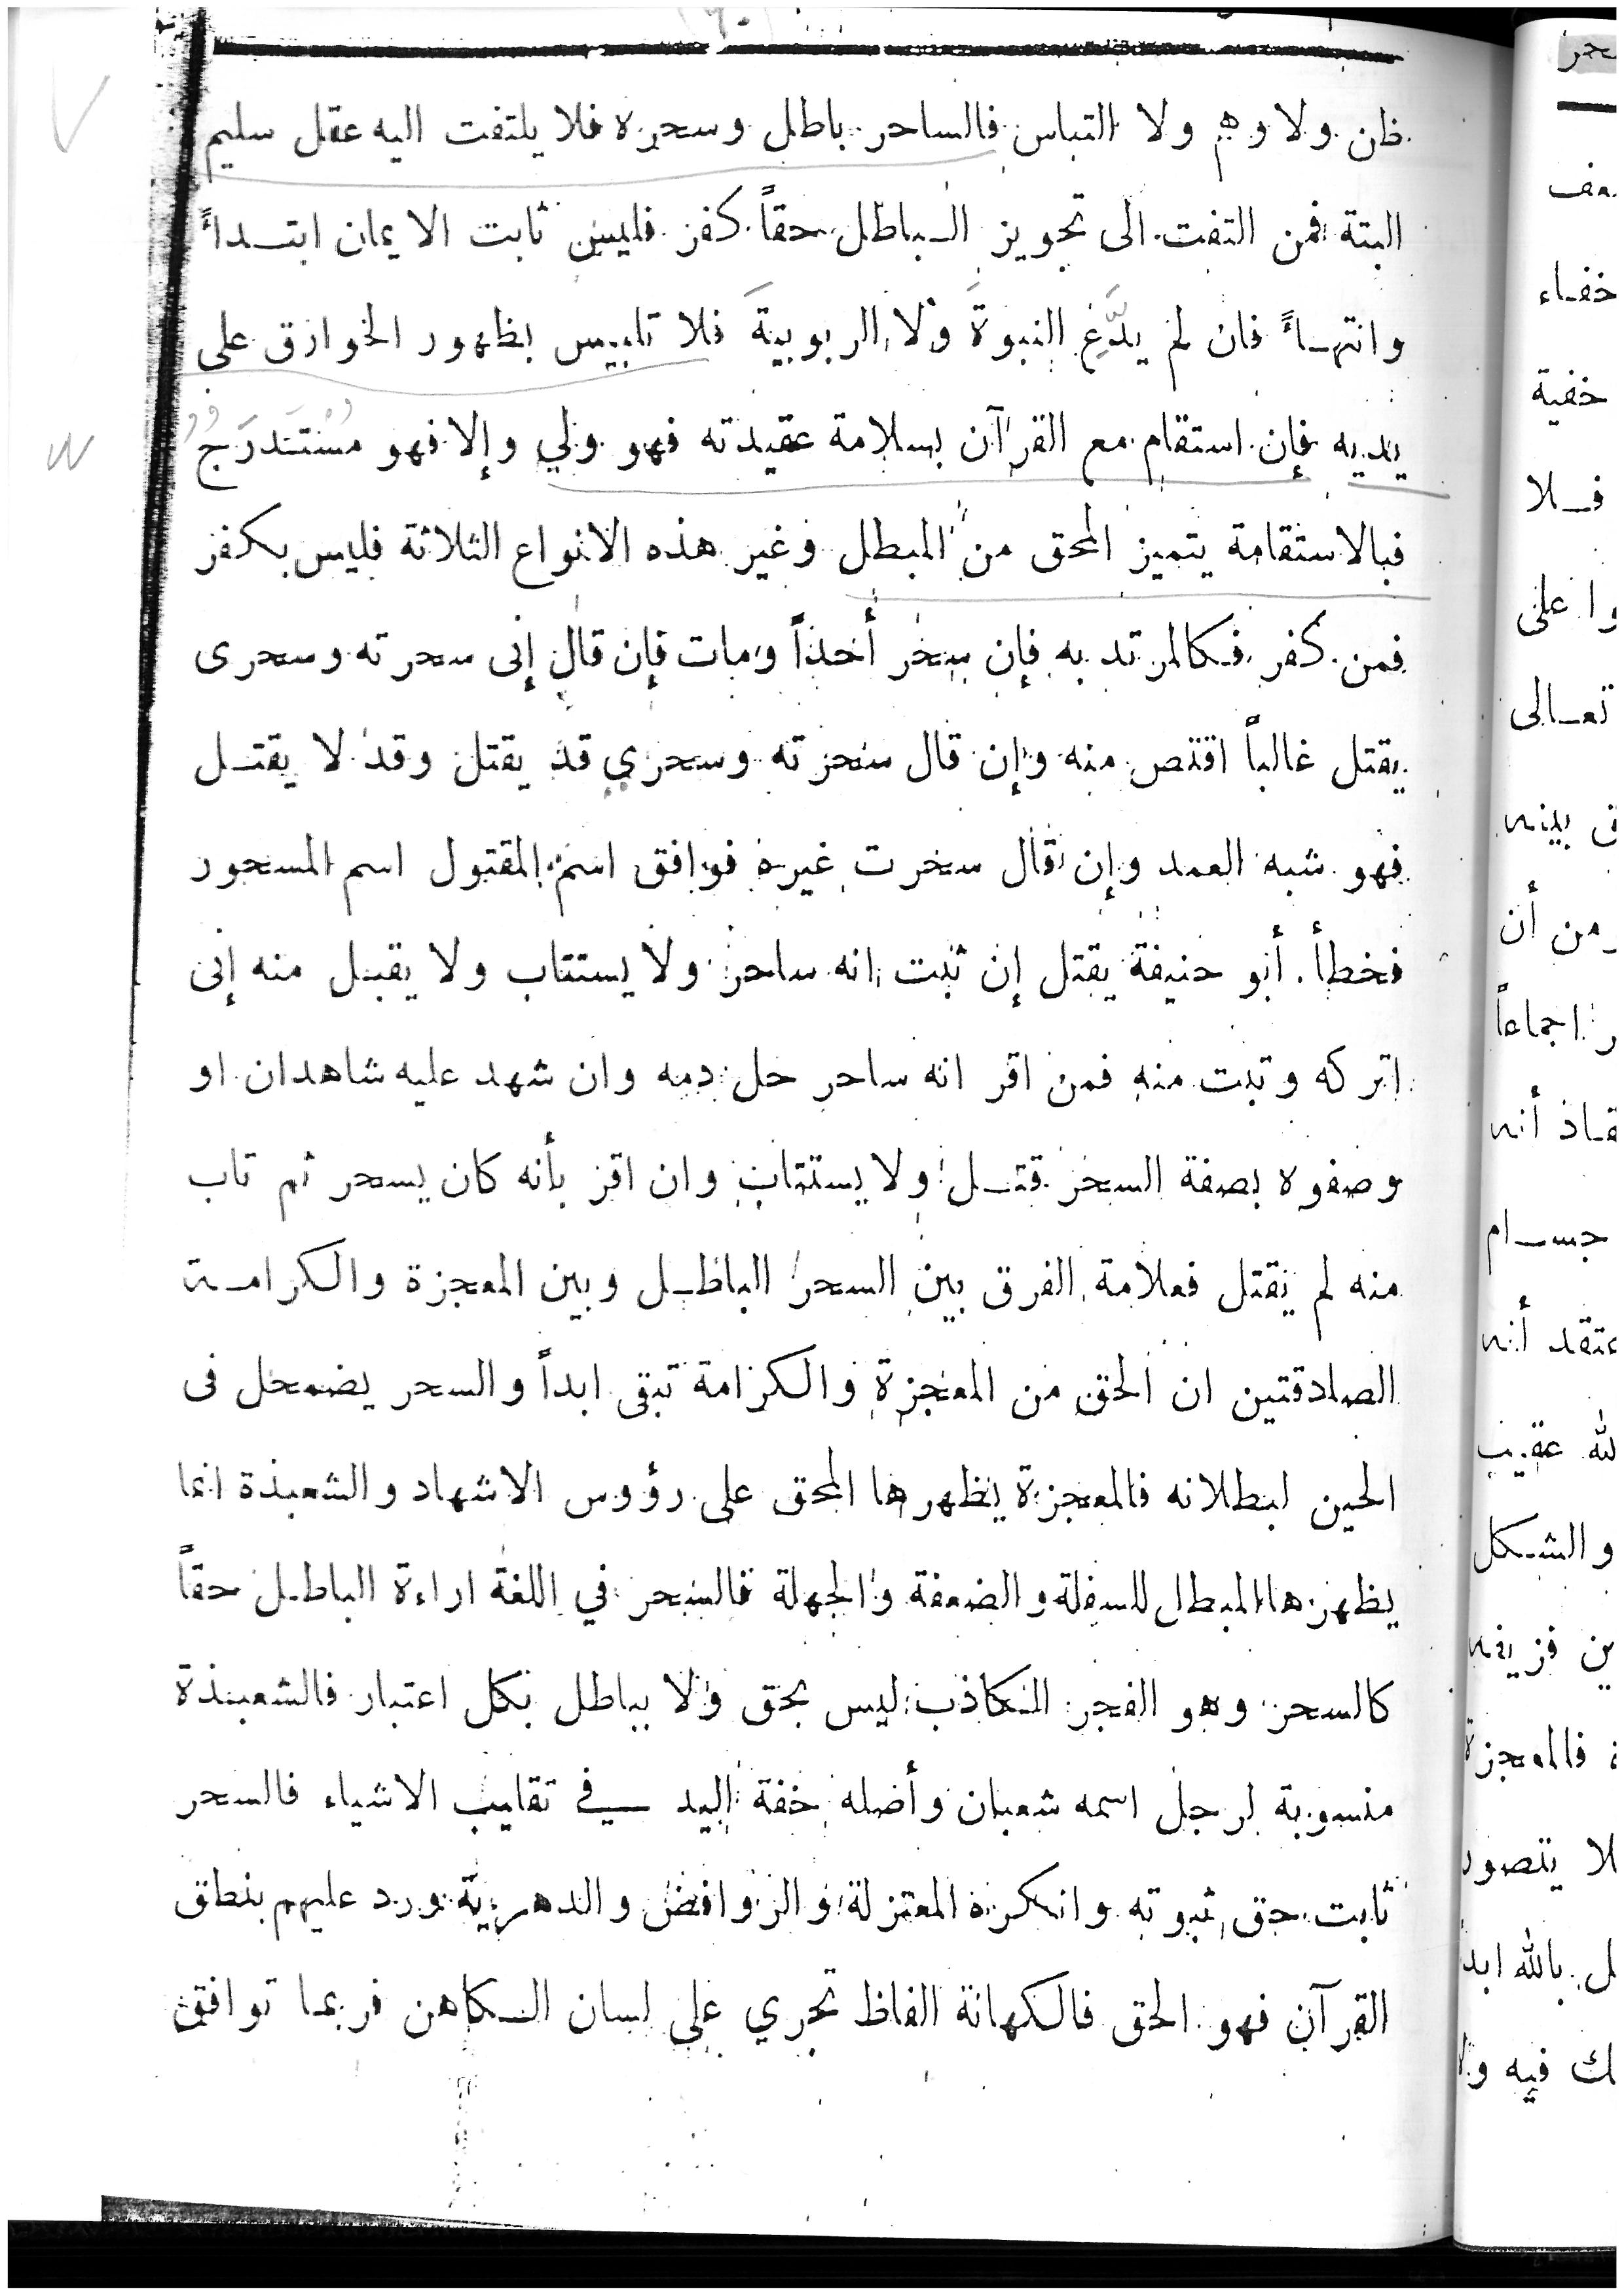 ظن ولا وهم ولا التباس فالساحر باطل وسحره فلا يلتفت اليه عقل سليم
البتة فمن التفت الى تجويز الباطل حقاً كفر فليس ثابت الايمان ابتداءً
وانتهاءً فان لم يدَّعِ النبوةَ ولا الربوبيةَ فلا تلبيس بظهور الخوارق على
يديه فإن استقام مع القرآن بسلامة عقيدته فهو ولي وإلا فهو مُسْتَدرَجٌ
فبالاستقامة يتميز المحق من المبطل وغير هذه الانواع الثلاثة فليس بكفر
فمن كفر فكالمرتد به فإن سحر أخذاً ومات فإن قال إنى سحرته وسحرى
يقتل غالباً اقتص منه وإن قال سحرته وسحري قد يقتل وقد لا يقتل
فهو شبه العمد وإن قال سحرت غيره فوافق اسم المقتول اسم المسحور
فخطأ. أبو حنيفة يقتل إن ثبت انه ساحر ولا يستتاب ولا يقبل منه إنى
اتركه وتبت منه فمن اقر انه ساحر حل دمه وان شهد عليه شاهدان او
وصفوه بصفة السحر قتل ولا يستتاب وان اقر بأنه كان يسحر ثم تاب
منه لم يقتل فعلامة الفرق بين السحر الباطل وبين المعجزة والكرامة
الصادقتين ان الحق من المعجزة والكرامة تبقى ابداً والسحر يضمحل فى
الحين لبطلانه فالمعجزة يظهرها المحق على رؤوس الاشهاد والشعبذة انما
يظهرها المبطل للسفلة والضعفة والجهلة فالسحر في اللغة اراءة الباطل حقاً
كالسحر وهو الفجر الكاذب ليس بحق ولا بباطل بكل اعتبار فالشعبذة
منسوبة لرجل اسمه شعبان وأصله خفة اليد في تقليب الاشياء فالسحر
ثابت حق ثبوته وانكره المعتزلة والروافض والدهرية ورد عليهم بنطق
القرآن فهو الحق فالكهانة الفاظ تجري على لسان الكاهن فربما توافق
خفاء
خفية
فلا
وا على
تعالى
من أن
اجماعاً
أنه
والشكل
فالمعجزة
لا يتصور